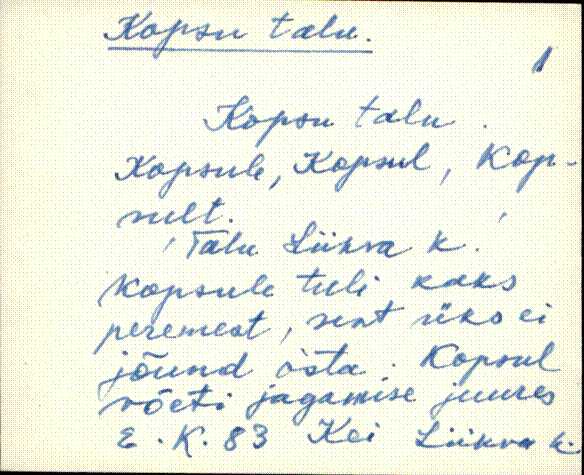 Kopsu talu.
1
Kopsu talu.
Kopsule, Kopsul, Kop-
sult.
Talu Liikva k.
Kopsule tuli kaks
peremest, sest üks ei
jõund osta. Kopsul
võeti jagamise juures
E. K. 83 Kei Liikva k.